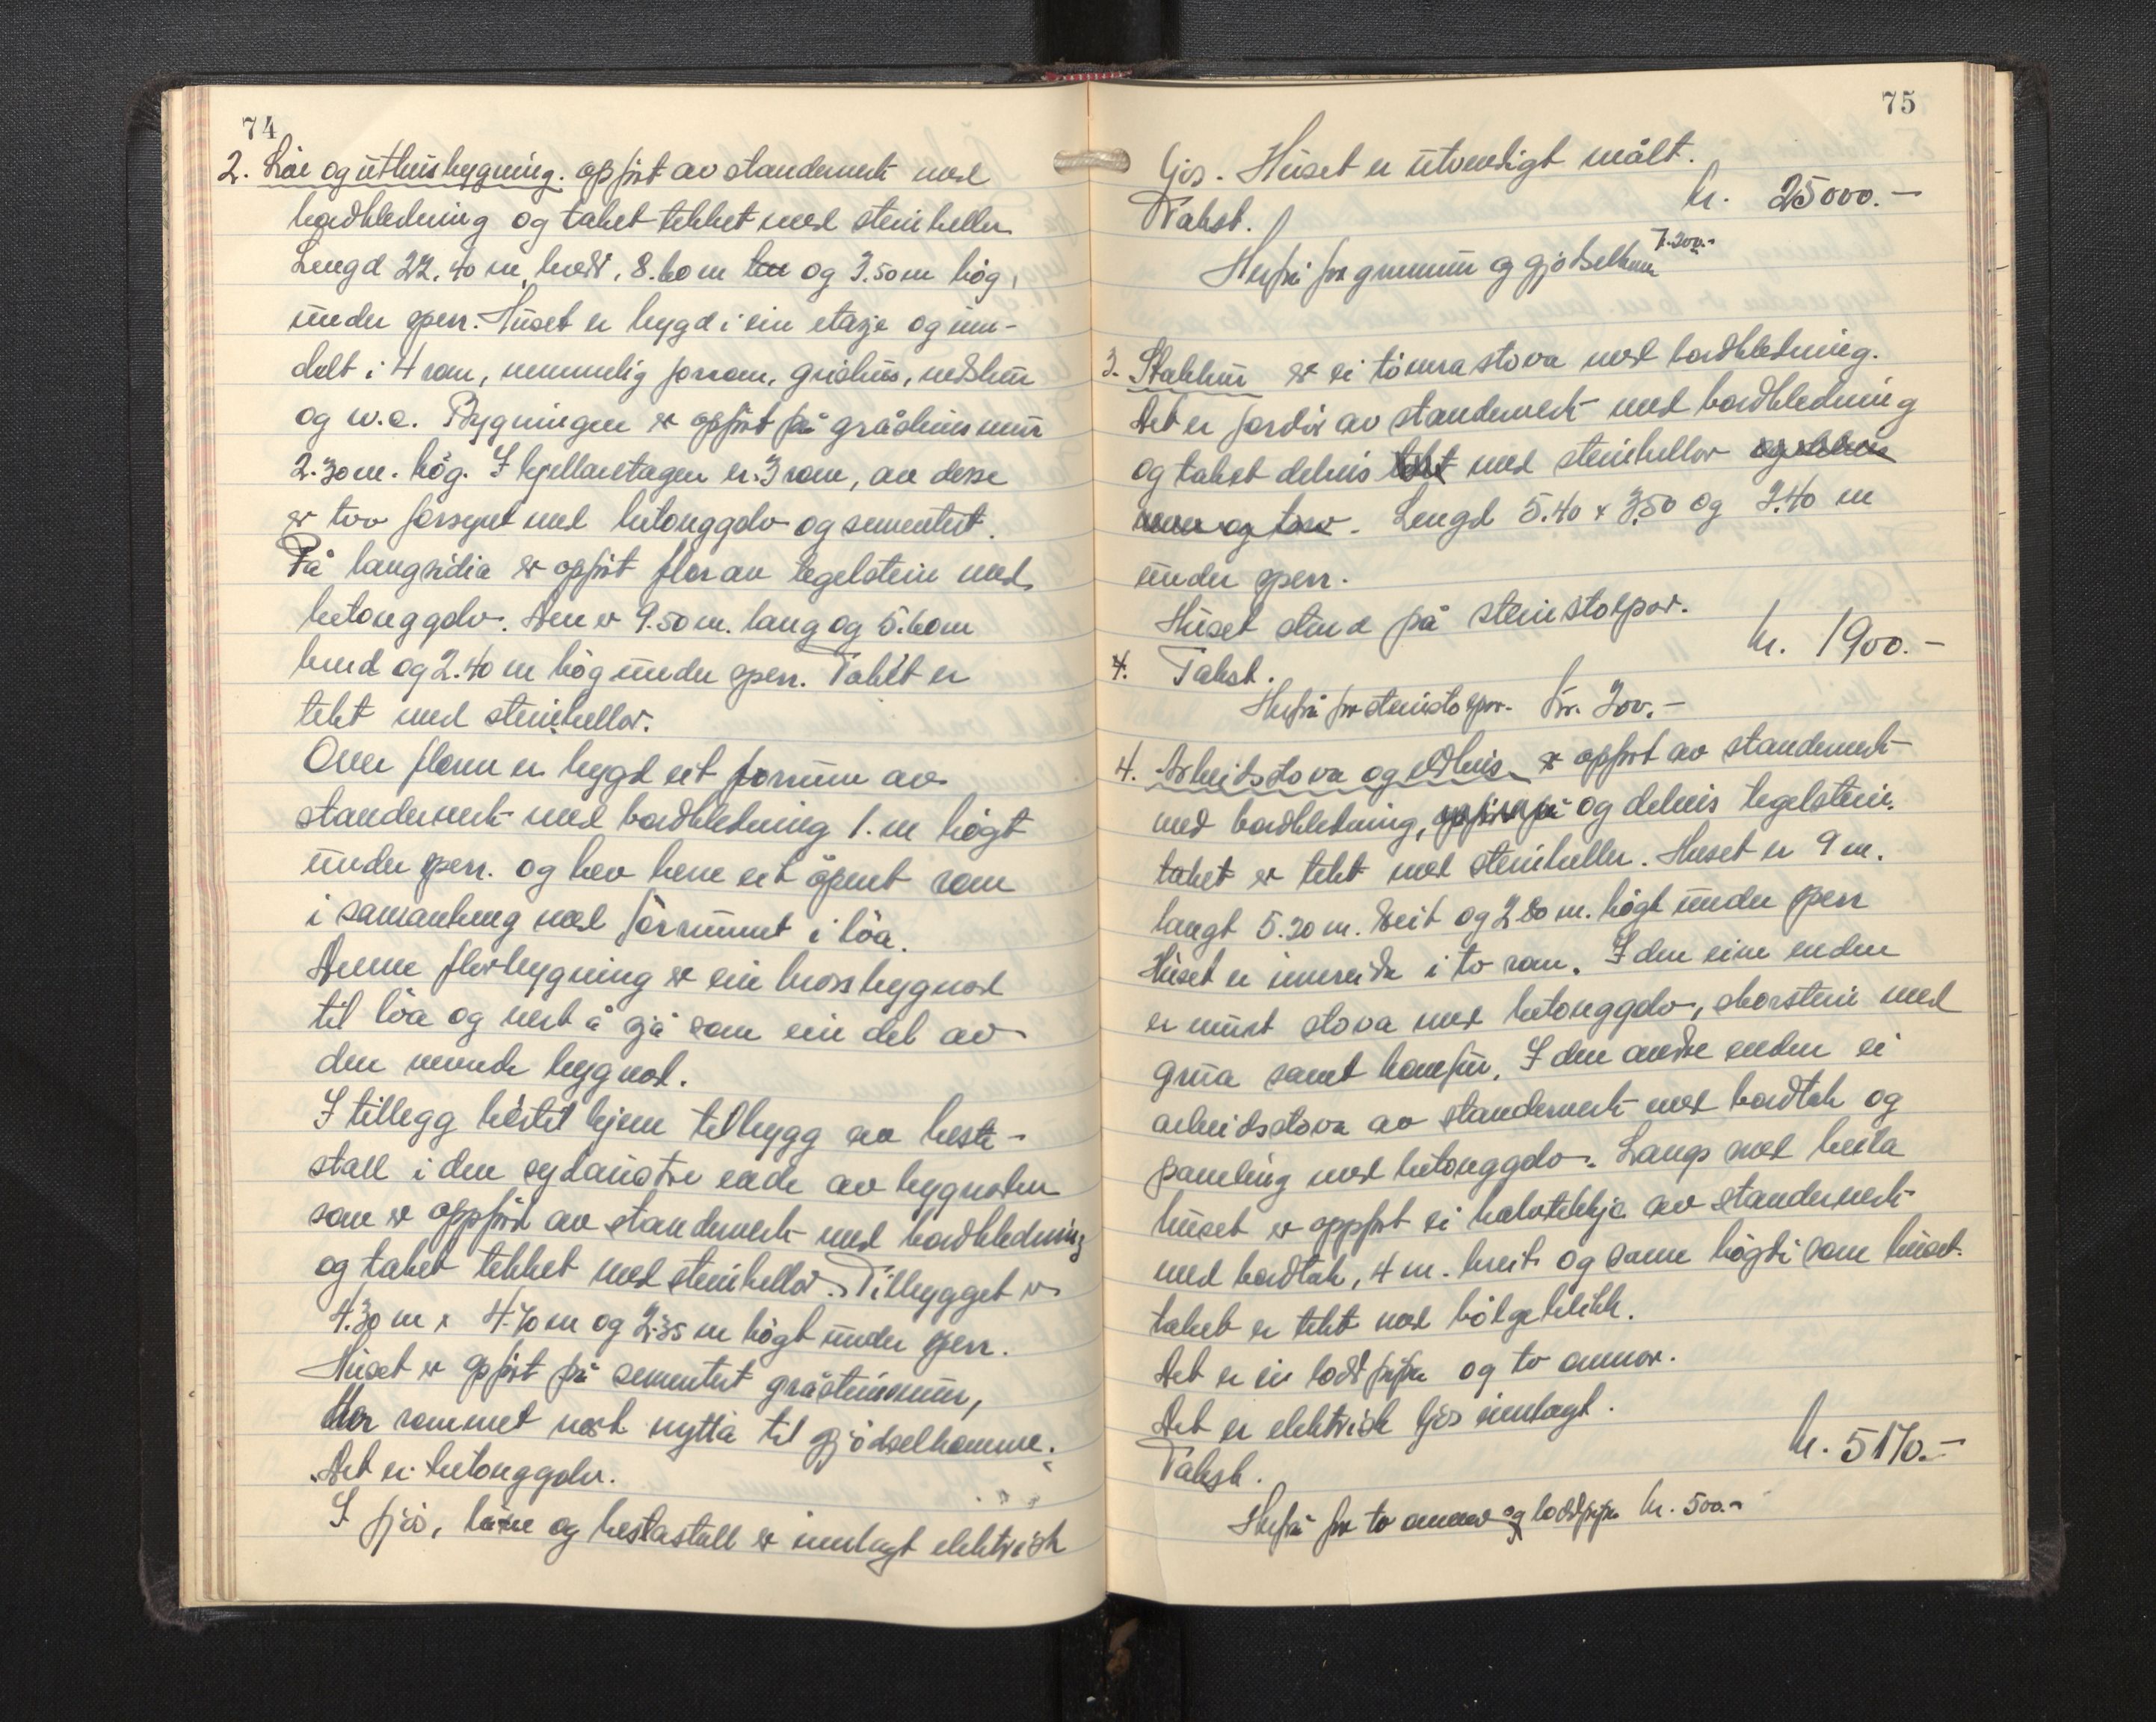 74
2. Löe og uthusbygning. oppført av standerverk med
bordkledning og taket tekket med steinheller
Lengd 22.40 m, breid. 8.60 m og 3.50 m høg,
under sperr. Huset er bygd i ein etasje og inn-
delt i 4 rom, nemmelig forrom, grishus, vedskur
og w.c. Bygningen er oppført på gråsteinsmur
2.30 m. høg. I kjellaretagen er 3 rom, av desse
er tvo forsynt med betonggolv og sementert.
På langsidia er oppført flor av tegelstein med
betonggolv. Den er 9.50 m. lang og 5.60 m
breid og 2.40 m høg under sperr. Taket er
tekt med steinhellor.
Over floren er bygd eit forrum av
standerverk med bordkledning 1. m högt
under sperr. og hev heve eit åpent rom
i samanheng med fôrrummet i löa.
Denne florbygning er ein krossbygnad
til löa og vert å sjå som ein del av
den nemnde bygnad.
I tillegg hertil kjem tilbygg av heste-
stall i den sydaustre ende av bygnaden
som er oppförd av standerverk med bordkledning
og taket tekket med steinhellor. Tilbygget er
4.30 m x 4.70 m og 2.35 m högt under sperr.
Huset er oppført på sementert gråsteinsmur,
Her rommet vert nytta til gjödselkamme.
Det er betonggolv.
I fjös, löe og hestastall er innlagt elektrisk
75
ljos. Huset er utvendigt målt.
Takst. kr. 25000.-
Herfrå for grunnmur og gjødselkum 7.200.-
3. Stabbur er ei tömra stova med bordkledning.
Det er fordir av standerverk med bordkledning
og taket delvis tekt med steinhellor
Lengd 5.40 x 3.50 og 2.40 m
under sperr.
Huset stend på steinstolpar.
4. Takst. kr. 1900.-
Herfrå for steinstolpar. kr. 200.-
4. Arbeidstova og eldhus er oppført av standerverk
med bordkledning, og delvis tegelstein.
taket er tekt med steinheller. Huset er 9 m.
langt 5.20 m. breit og 2.80 m. högt under sperr
Huset er innreidt i to rom. I den eine enden
er murt stova med betonggolv, skorstein med
grua samt komfur. I den andre enden ei
arbeidsstova av standerverk med bordtak og
paneling med betonggolv. Langs med heila
huset er oppført ei halvtekkja av standerverk
med bordtak, 4 m. breit og same högdi som huset.
taket er tekt med bölgeblikk.
Det er ei lodd pipa og to omnar.
Det er elektrisk ljos innlagt.
Takst. kr. 5170.-
Herfrå for to omnar og loddpipa kr. 500.-